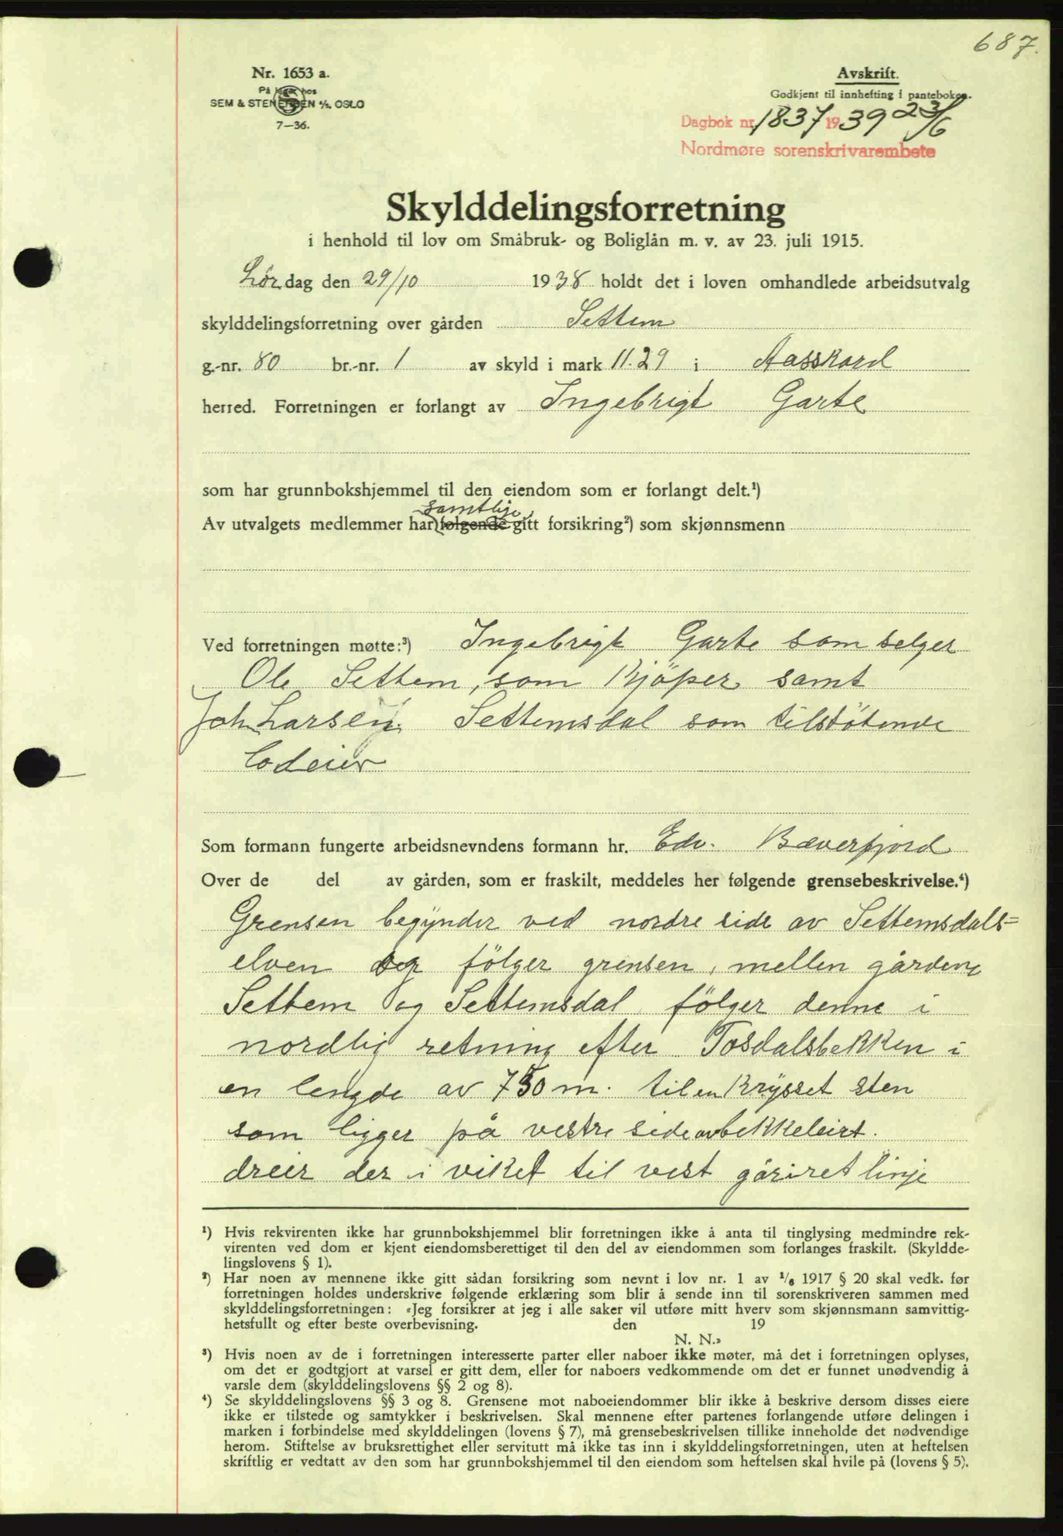 687.
Nr. 1653 a.
På lager hos
SEM & STENERSEN A/S. OSLO
7—36.
Avskrift.
Godkjent til innhefting i panteboken.
Dagbok nr. 1837 1939 23/6
Nordmøre sorenskrivarembete
Skylddelingsforretning
i henhold til lov om Småbruk- og Boliglån m. v. av 23. juli 1915.
Lördag den 29/10 1938 holdt det i loven omhandlede arbeidsutvalg
skylddelingsforretning over gården Settem
g.-nr. 80 br.-nr. 1 av skyld i mark 11.29 i Aasskard
herred. Forretningen er forlangt av Ingebrigt Garte
som har grunnbokshjemmel til den eiendom som er forlangt delt.¹)
samtlige
Av utvalgets medlemmer har følgende gitt forsikring²) som skjønnsmenn
Ved forretningen møtte:³) Ingebrigt Garte som selger
Ole Settem, som Kjöper samt
Joh. Larsen Settemsdal som tilstötende
lodeier
Som formann fungerte arbeidsnevndens formann hr. Edv. Bæverfjord
Over de del av gården, som er fraskilt, meddeles her følgende grensebeskrivelse.⁴)
Grensen begynder ved nordre side av Settemsdals=
elven og fölger grensen, mellen gårdene
Settem og Settemsdal fölger denne i
nordlig retning efter Tosdalsbekken i
en lengde av 750 m. til en Krysset sten
som ligger på vestre side av bekkeleiet.
dreier der i vikel til vest går i ret linje
¹) Hvis rekvirenten ikke har grunnbokshjemmel blir forretningen ikke å anta til tinglysing medmindre rek-
virenten ved dom er kjent eiendomsberettiget til den del av eiendommen som forlanges fraskilt. (Skyldde-
lingslovens § 1).
²) Har noen av mennene ikke gitt sådan forsikring som nevnt i lov nr. 1 av 1/6 1917 § 20 skal vedk. før
forretningen holdes underskrive følgende erklæring som blir å sende inn til sorenskriveren sammen med
skylddelingsforretningen: «Jeg forsikrer at jeg i alle saker vil utføre mitt hverv som skjønnsmann samvittig-
hetsfullt og efter beste overbevisning. den 19
N. N.»
³) Hvis noen av de i forretningen interesserte parter eller naboer ikke møter, må det i forretningen oplyses,
om det er godtgjort at varsel er gitt dem, eller for naboers vedkommende om det er funnet unødvendig å
varsle dem (skylddelingslovens §§ 2 og 8).
⁴) Se skylddelingslovens §§ 3 og 8. Grensene mot naboeiendommer blir ikke å beskrive dersom disses eiere
ikke er tilstede og samtykker i beskrivelsen. Skal mennene efter partenes forlangende utføre delingen i
marken i forbindelse med skylddelingen (lovens § 7), må grensebeskrivelsen tillike inneholde det nødvendige
herom. Stiftelse av bruksrettighet eller servitutt må ikke tas inn i skylddelingsforretningen, uten at heftelsen
skriftlig er vedtatt av den som har grunnbokshjemmel til den eiendom som heftelsen skal hvile på (lovens § 5).